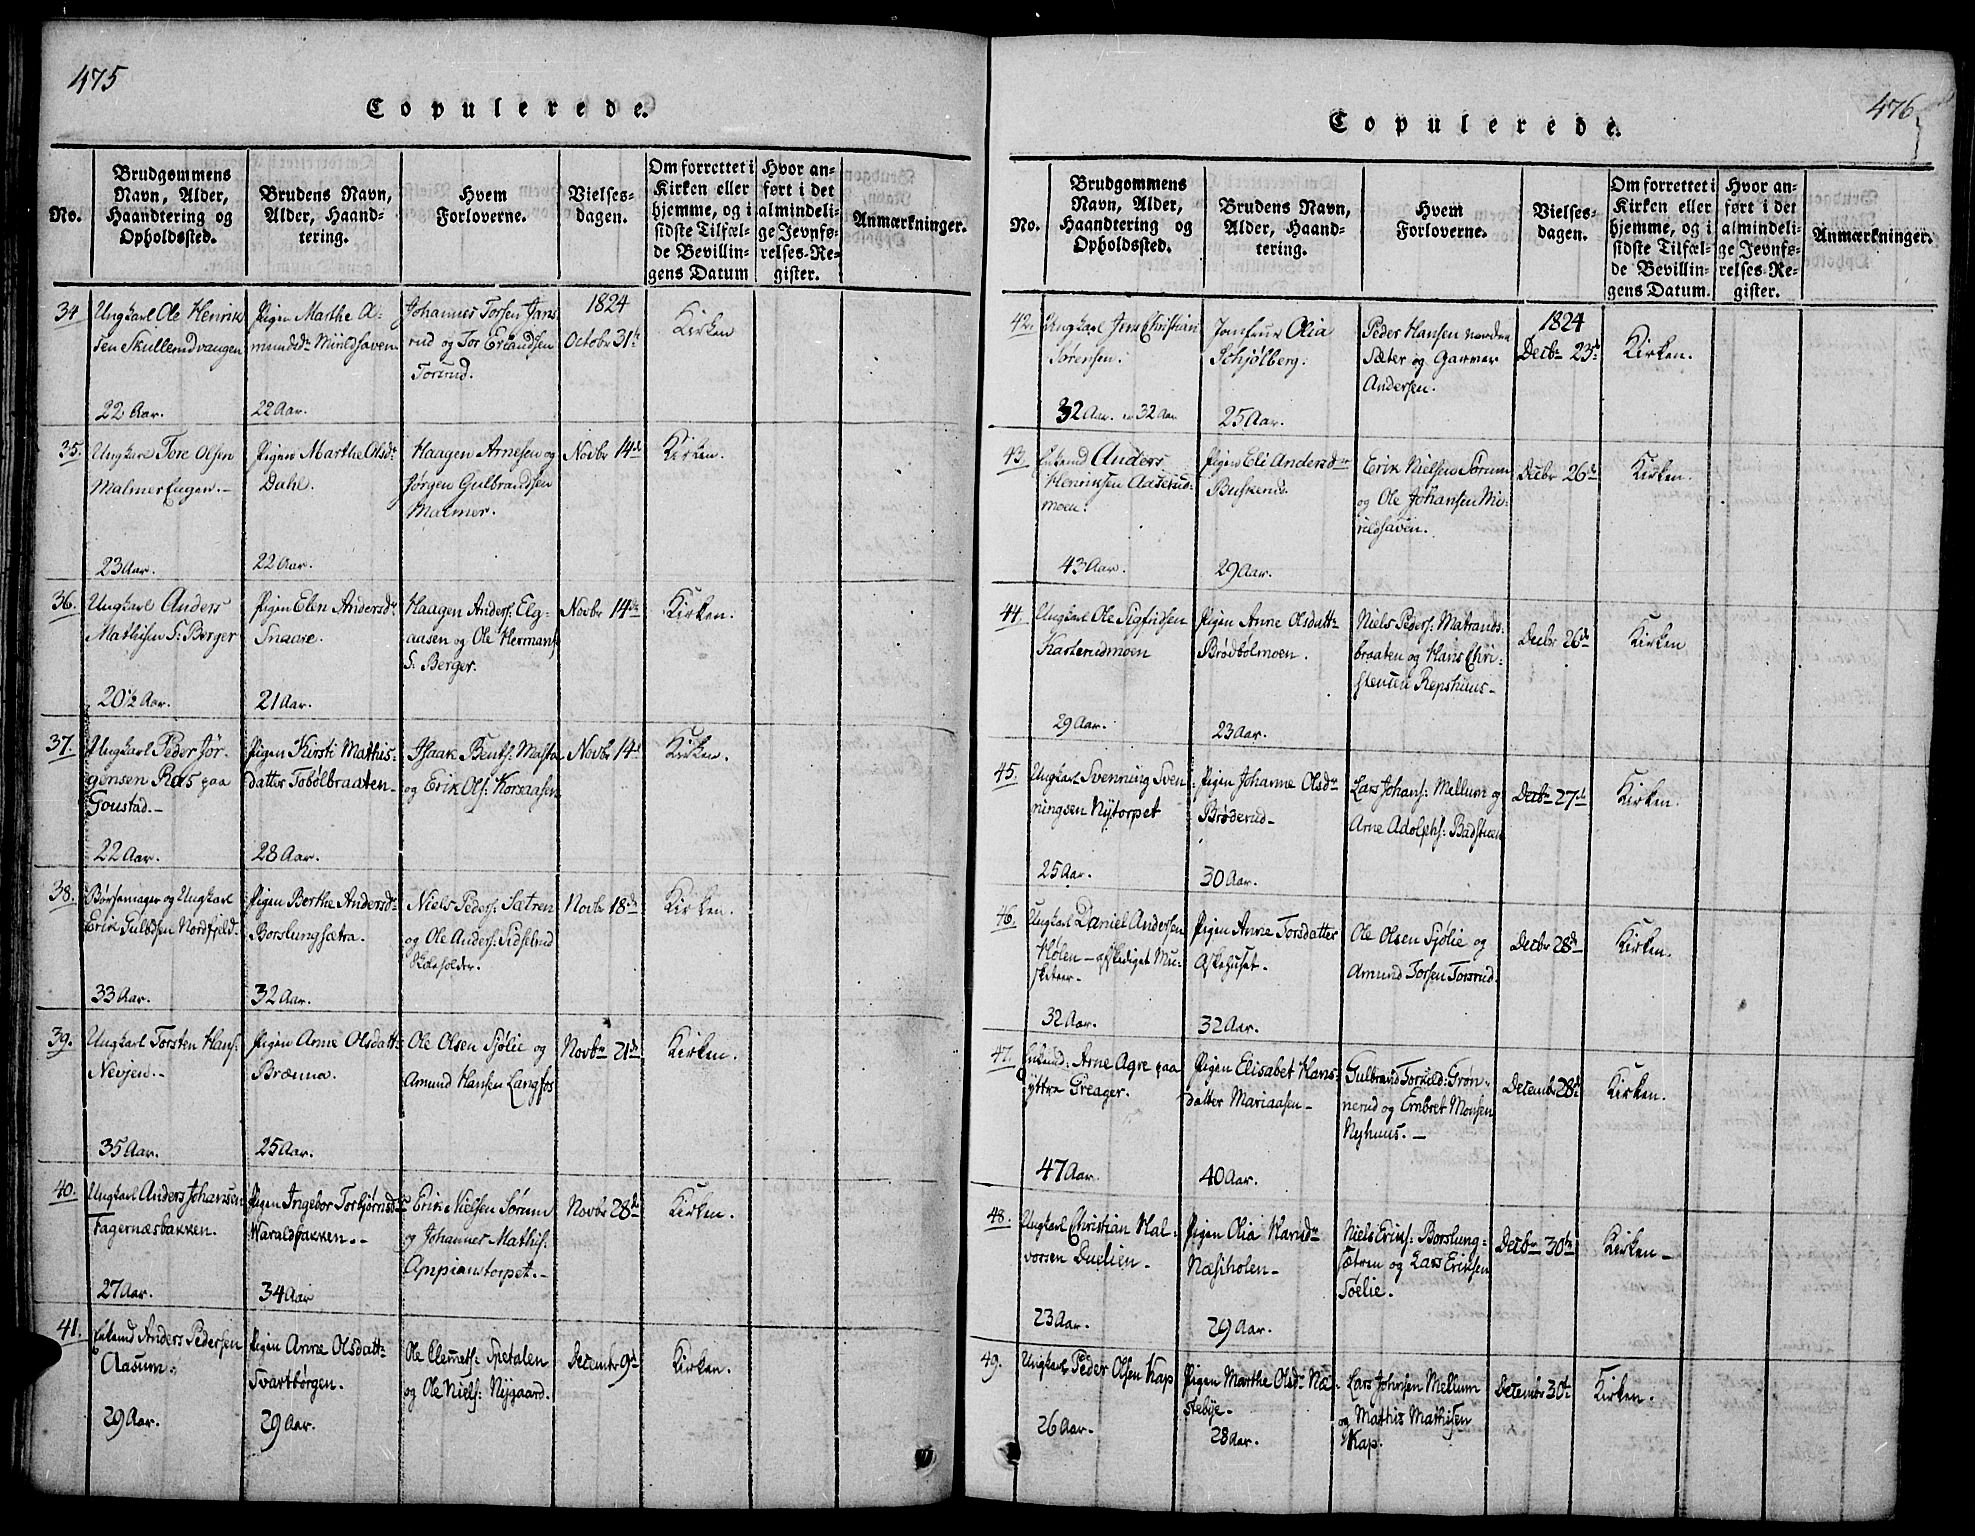 475
Copulerede.
No.
Brudgommens
Navn, Alder,
Haandtering og
Opholdssted.
Brudens Navn,
Alder, Haand-
tering.
Hvem
Forloverne.
Vielses-
dagen.
Om forrettet i
Kirken eller
hjemme, og i
sidste Tilfæl-
de Bevillin-
gens Datum
Hvor an-
ført i det
almindeli-
ge Jevnfø-
relses-Re-
gister.
Anmærkninger.
34
Ungkarl Ole Henrik
sen Skullerudvangen
22 Aar.
Pigen Marthe A-
mundsdr
22 Aar.
Johannes Torsen Jans
rud og Tor Erlandsen
Torsrud.
1824
Octobr 31te
Kirken
35.
Ungkarl Tore Olsen
Malmer Eugen.-
23 Aar.
Pigen Marthe Olsdr
Dahl.
22 Aar.
Haagen Arnesen og
Jørgen Gulbrandsen
Malmer.
Novbr 14de
Kirken.
36.
Ungkarl Anders
Mathisen S: Berger
20½ Aar.
Pigen Elen Andersdr
Snaare.
21 Aar.
Haagen Anders: Elg-
aasen og Ole Hermans
S. Berger.
Novbr 14de
Kirken.
37.
Ungkarl Peder Jør-
gensen Ras paa
Goustad.-
22 Aar.
Pigen Kirsti Mathis-
datter Tobølbraaten-
28 Aar.
Isaak Bents: Masta
og Erik Ols: Korsaasen
Novbr 14d
Kirken.
38.
Børsemager og Ungkarl
Erik Gulbdsen Nordfjeld.
33 Aar.
Pigen Berthe Andersdr
Borslungsætra.
32 Aar.
Niels Peders: Sætren
og Ole Anders: Sidselrud
Skoleholder.
Novbr 18de
Kirken.
39.
Ungkarl Torsten Hans:
Nevjen.-
35 Aar.
Pigen Anne Olsdattr
Brænna.
25 Aar.
Ole Olsen Sjølie og
Amund Hansen Langfos
Novbr 21de
Kirken.
40.
Ungkarl Anders Johansen
Fagernæsbakken.
27 Aar.
Pigen Ingebor Torbjørnsdr
Haraldbakken.-
34 Aar
Erik Nielsen Sørum
og Johannes Mathis:
Appianstorpet.-
Novbr 28de
Kirken.
41.
Enkemd Anders Pedersen
Aasum.
29 Aar.
Pigen Anne Olsdattr
Svartbørgen.
29 Aar.
Ole Clemets: Spetalen
og Ole Niels: Nygaard.
Decembr 9d
Kirken.
476
Copulerede.
No.
Brudgommens
Navn, Alder,
Haandtering og
Opholdssted.
Brudens Navn,
Alder, Haand-
tering.
Hvem
Forloverne.
Vielses-
dagen.
Om forrettet i
Kirken eller
hjemme, og i
sidste Tilfæl-
de Bevillin-
gens Datum.
Hvor an-
ført i det
almindeli-
ge Jevnfø-
relses-Re-
gister.
Anmærkninger.
42.
Ungkarl Jens Christian
Sørensen.
32 Aar. 32 Aar
Jomfrue Olia
Schjølberg.
25 Aar.
Peder Hansen nordre
Sæter og Garver
Andersen.
1824
Decbr 23d
Kirken.
43.
Enkemd Anders
Henriksen Aaserud-
moen.
43 Aar.
Pigen Eli Andersdr
Buskerud.
29 Aar.
Erik Nielsen Sørum
og Ole Johansen
Decbr 26de
Kirken.
44.
Ungkarl Ole Sigfridsen
Kasterudmoen
29 Aar.
Pigen Anne Olsdattr
Brødbølmoen.
23 Aar.
Niels Peders: Matrands-
braaten og Hans Chri-
stensen Repshuus-
Decbr 26de
Kirken
45.
Ungkarl Svenning Sven-
ningsen Nytorpet
25 Aar.
Pigen Johanne Olsdr
Brøderud-
30 Aar.
Lars Johans: Mellum og
Arne Adolphs: Badstuen
Decbr 27d
Kirken.
46.
Ungkarl Daniel Andersen
Hølen - afskediget Mu-
sketeer.
32 Aar.
Pigen Anne Torsdatter
Askehuset.
32 Aar.
Ole Olsen Sjølie og
Amund Torsen Torsrud.
Decbr 28d
Kirken.
47.
Enkemd: Arne Agre paa
yttra Greager.
47 Aar.
Pigen Elisabet Hans-
datter Mariaasen-
40 Aar.
Gulbrand Torkild: Grøn-
nerud og Embret Monsen
Nyhuus.-
Decembr 28d
Kirken.
48.
Ungkarl Christian Hal-
vorsen Duelien-
23 Aar.
Pigen Olia
Næsiholen-
29 Aar.
Niels Eriks: Borslung-
sætren og Lars Eriksen
Soelie.
Decbr 30te
Kirken-
49.
Ungkarl Peder Olsen Kap
26 Aar.
Pigen Marthe Olsdr Næ-
stebye-
28 Aar.
Lars Johnsen Mellum
og Mathis Mathisen
Kap.
Decembr 30te
Kirken.